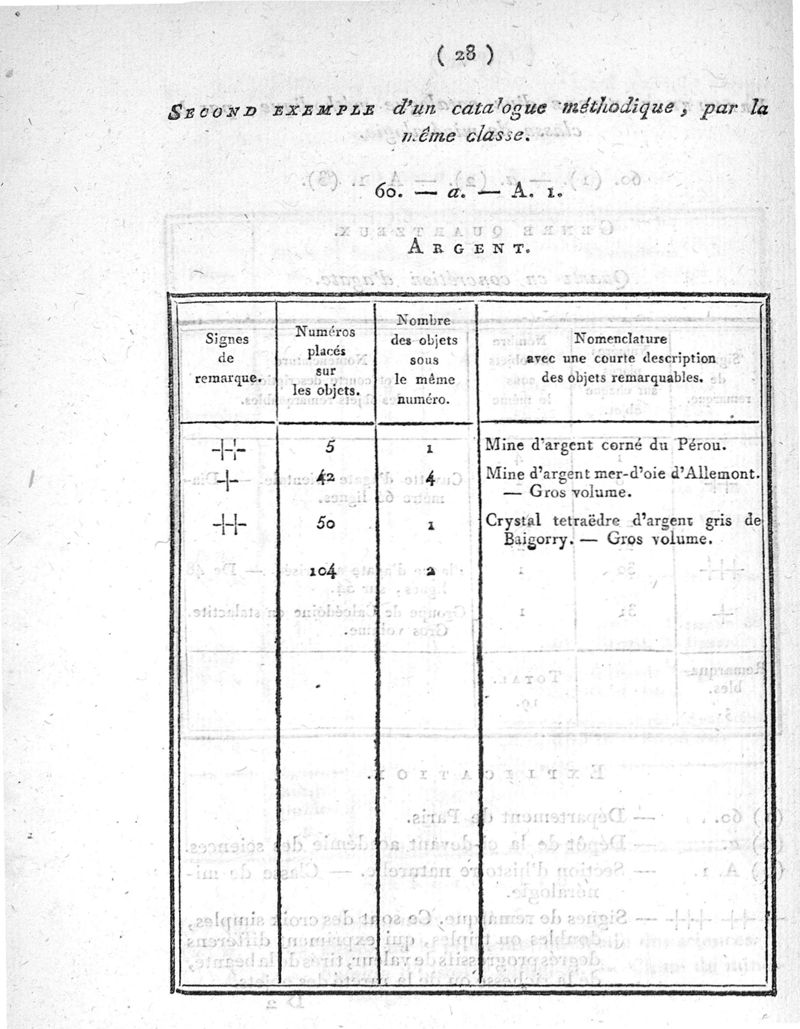 ( 28 )
SECOND EXEMPLE d'un catalogue méthodique, par la
même classe.
60. — a. — A. 1.
ARGENT.
Signes
de
remarque.
Numéros
placés
sur
les objets.
Nombre
des objets
sous
le même
numéro.
Nomenclature
avec une courte description
des objets remarquables.
-|-|- 5 1 Mine d'argent corné du Pérou.
-|- 42 4 Mine d'argent mer-d'oie d'Allemont.
— Gros volume.
-|-|- 50 1 Crystal tetraëdre d'argent gris de
Baigorry. — Gros volume.
104 2